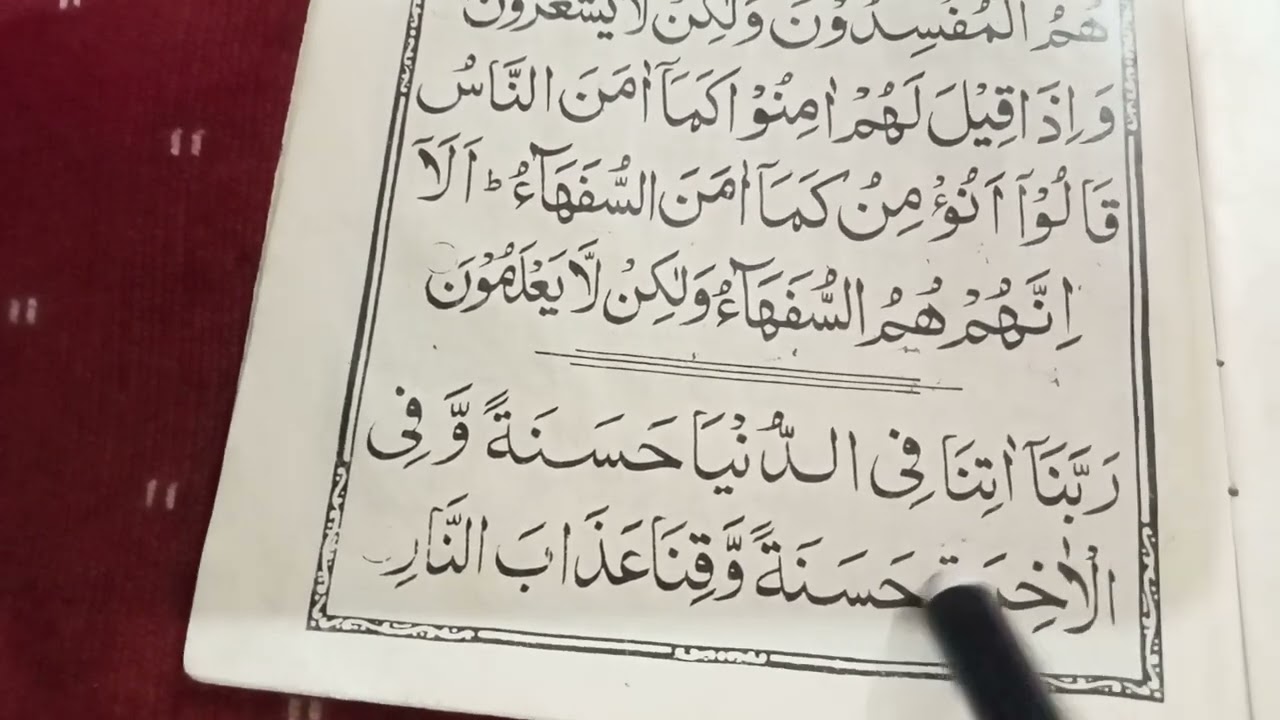 هُمُ الْمُفْسِدُوْنَ وَلٰكِنْ لَّا يَشْعُرُوْنَ
وَاِذَا قِيْلَ لَهُمْ اٰمِنُوْا كَمَآ اٰمَنَ النَّاسُ
قَالُوْٓا اَنُؤْمِنُ كَمَآ اٰمَنَ السُّفَهَآءُ ؕ اَلَآ
اِنَّهُمْ هُمُ السُّفَهَآءُ وَلٰكِنْ لَّا يَعْلَمُوْنَ
رَبَّنَآ اٰتِنَا فِى الدُّنْيَا حَسَنَةً وَّ فِى
الْاٰخِرَةِ حَسَنَةً وَّقِنَا عَذَابَ النَّارِ